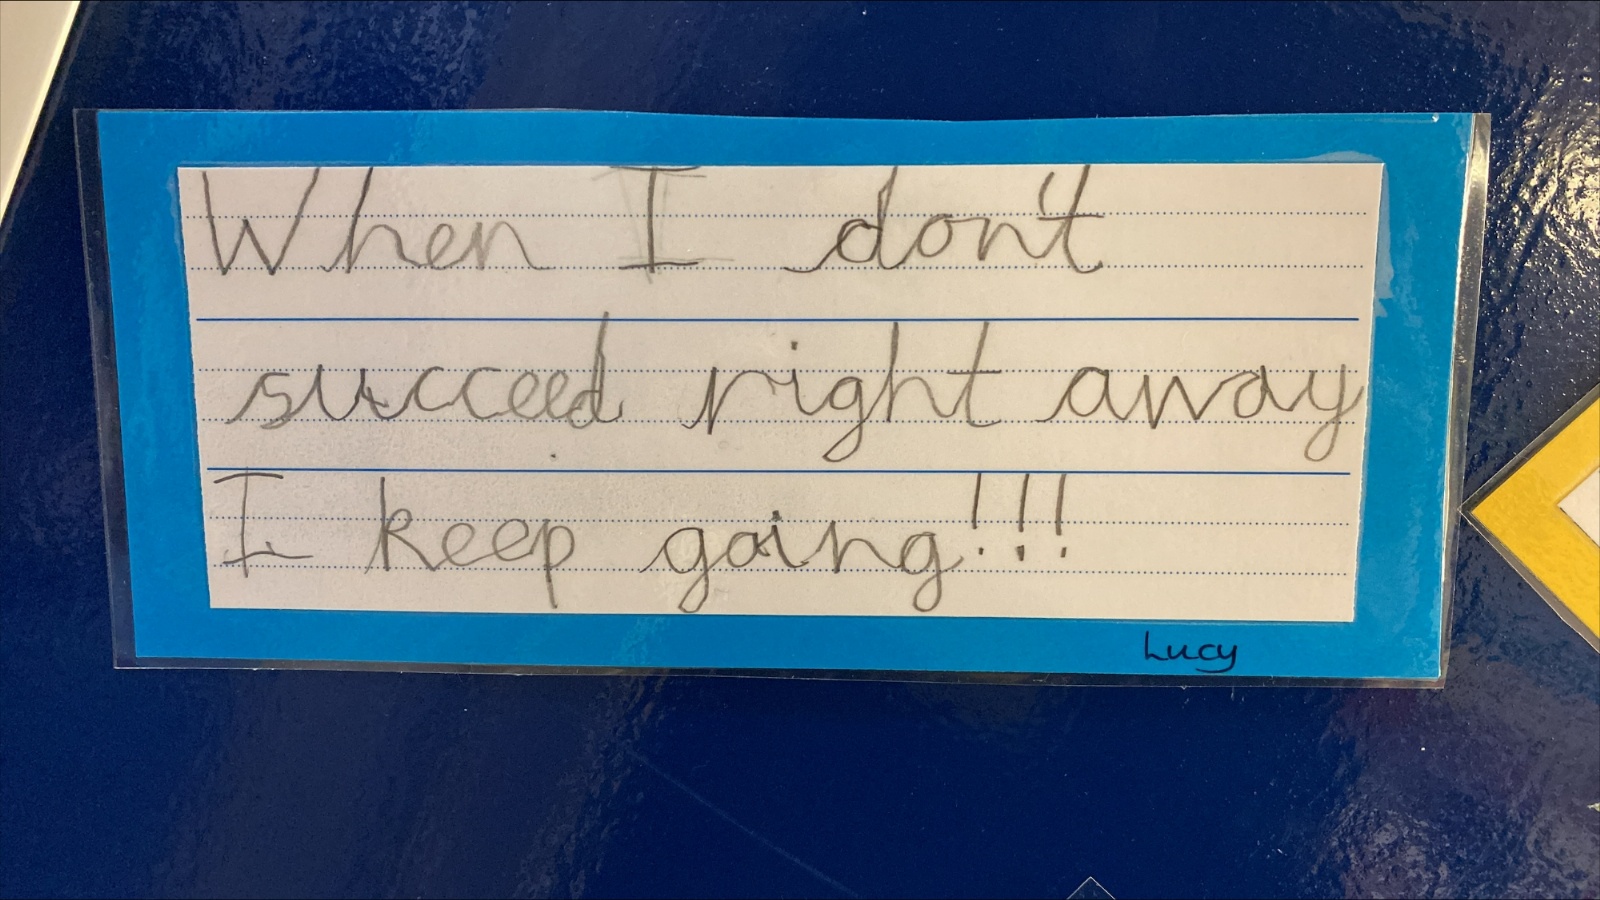 When I don't
succeed right away
I keep going!!!
Lucy